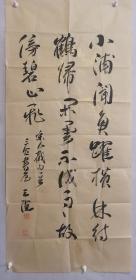 小浦闻鱼跃横林待
鹤归闲云不成雨故
傍碧山飞